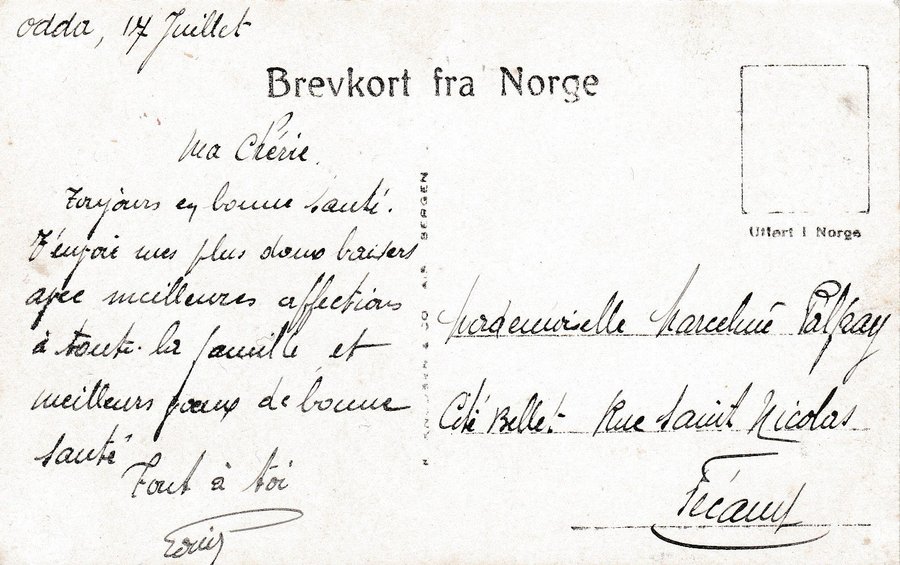 Odda, 17 Juillet
Brevkort fra Norge
Ma Chérie.
Toujours en bonne santé.
T'envoie mes plus doux baisers
avec meilleures affections
à toute la famille et
meilleurs voeux de bonne
santé
Tout à toi
BERGEN
Utført i Norge
Mademoiselle Marceline
Cité Bellet Rue Saint Nicolas
Fécamp